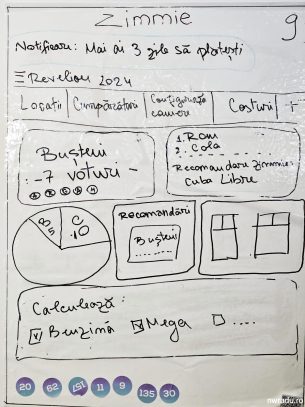 Zimmie
9
Notificare: Mai ai 3 zile să plătești
Revelion 2024
Locații Cumpărături Configurează camere Costuri +
Bușteni
-7 voturi-
1. Rom
2. Cola
Recomandare Zimmie:
Cuba Libre
B
5
C
10
Recomandări
Bușteni
Calculează:
Benzină Mega ....
20 62 157 11 9 135 30
nwradu.ro